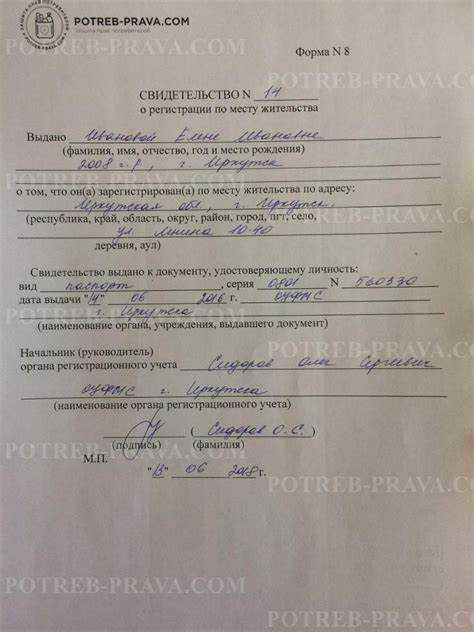 POTREB-PRAVA.COM
Защита прав потребителей
Форма N 8
СВИДЕТЕЛЬСТВО N 14
о регистрации по месту жительства
Выдано Ивановой Елене Ивановне
(фамилия, имя, отчество, год и место рождения)
2008 г.р, г. Иркутск
о том, что он(а) зарегистрирован(а) по месту жительства по адресу:
Иркутская обл, г. Иркутск,
(республика, край, область, округ, район, город, пгт, село,
ул Ленина 10-40
деревня, аул)
Свидетельство выдано к документу, удостоверяющему личность:
вид паспорт, серия 0801 N 560330
дата выдачи "14" 06 2016 г. ОУФМС
г. Иркутска
(наименование органа, учреждения, выдавшего документ)
Начальник (руководитель)
органа регистрационного учета Сидоров Олег Сергеевич
ОУФМС г. Иркутска
(наименование органа регистрационного учета)
( Сидоров О.С. )
(подпись) (фамилия)
М.П.
"13" 06 2018 г.
POTREB-PRAVA.COM